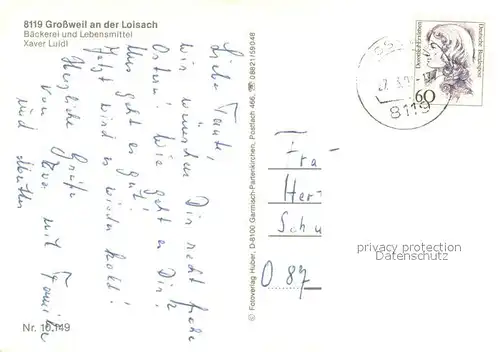 8119 Großweil an der Loisach
Bäckerei und Lebensmittel
Xaver Luidl
Liebe Tante,
wir wünschen Dir recht frohe
Ostern! Wie geht es Dir?
Uns geht es gut!
Jetzt wird es wieder kalt!
Herzliche Grüße
von Eva mit Familie
und Mutter
Nr. 10.149
© Fotoverlag Huber, D-8100 Garmisch-Partenkirchen, Postfach 466, ☎ 08821/59048
Deutsche Bundespost
60
8119
Fra
Her-
Schu
O 87
privacy protection
Datenschutz